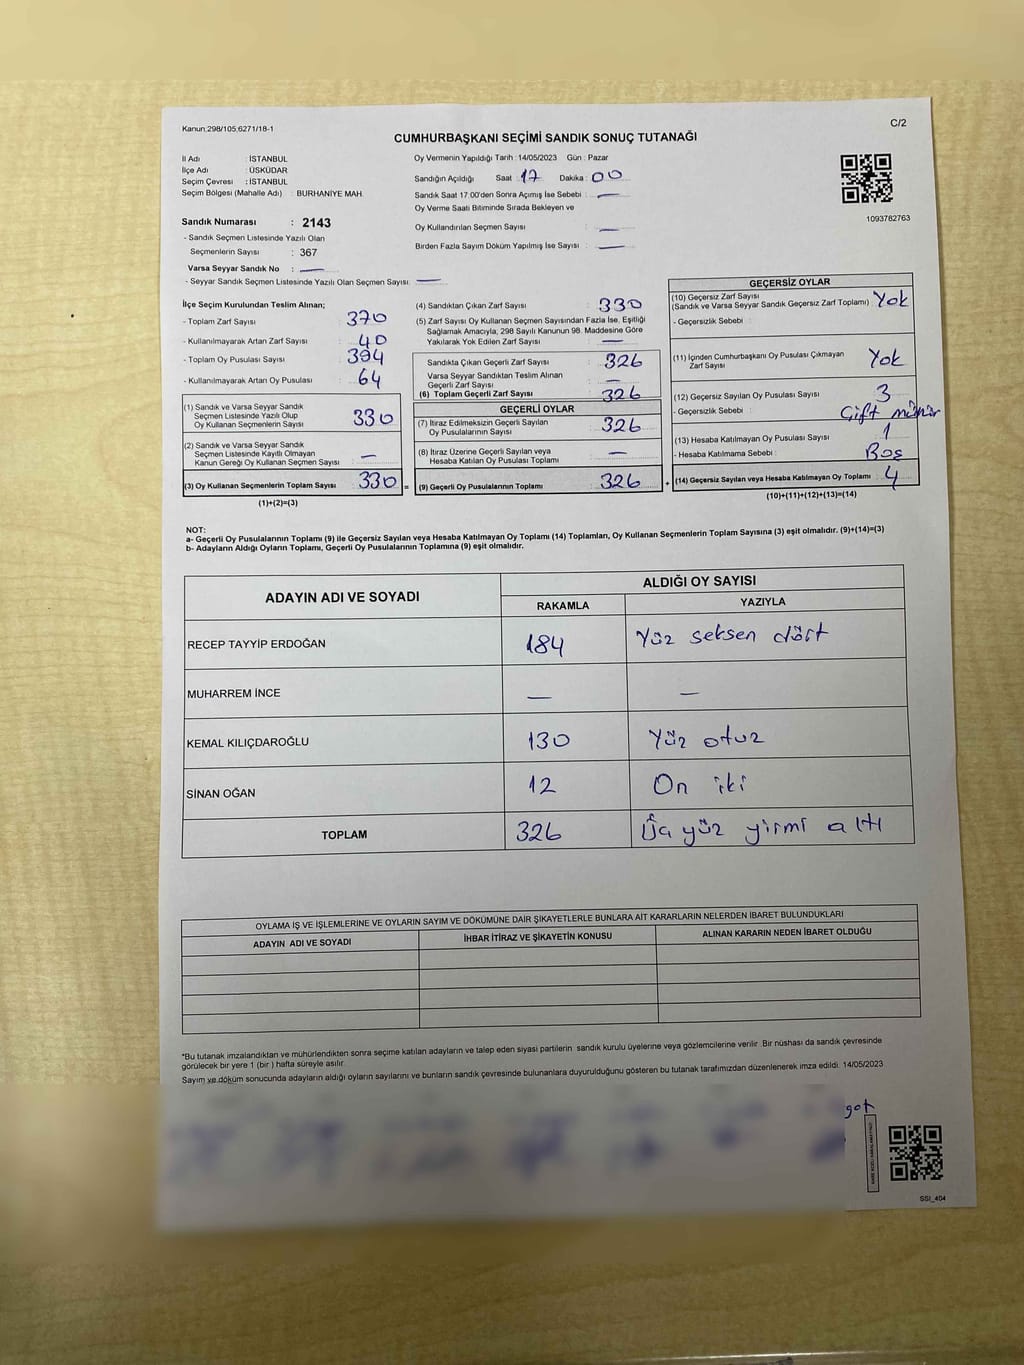 Kanun;298/105;6271/18-1
C/2
CUMHURBAŞKANI SEÇİMİ SANDIK SONUÇ TUTANAĞI
İl Adı : İSTANBUL
İlçe Adı : ÜSKÜDAR
Seçim Çevresi : İSTANBUL
Seçim Bölgesi (Mahalle Adı) : BURHANİYE MAH.
Sandık Numarası : 2143
- Sandık Seçmen Listesinde Yazılı Olan
Seçmenlerin Sayısı : 367
Varsa Seyyar Sandık No : —
- Seyyar Sandık Seçmen Listesinde Yazılı Olan Seçmen Sayısı: —
Oy Vermenin Yapıldığı Tarih : 14/05/2023 Gün : Pazar
Sandığın Açıldığı Saat : 17 Dakika : 00
Sandık Saat 17.00'den Sonra Açımış İse Sebebi : —
Oy Verme Saati Bitiminde Sırada Bekleyen ve
Oy Kullandırılan Seçmen Sayısı : —
Birden Fazla Sayım Döküm Yapılmış İse Sayısı : —
1093782763
İlçe Seçim Kurulundan Teslim Alınan;
- Toplam Zarf Sayısı : 370
- Kullanılmayarak Artan Zarf Sayısı : 40
- Toplam Oy Pusulası Sayısı : 394
- Kullanılmayarak Artan Oy Pusulası : 64
(1) Sandık ve Varsa Seyyar Sandık
Seçmen Listesinde Yazılı Olup
Oy Kullanan Seçmenlerin Sayısı : 330
(2) Sandık ve Varsa Seyyar Sandık
Seçmen Listesinde Kayıtlı Olmayan
Kanun Gereği Oy Kullanan Seçmen Sayısı : —
(3) Oy Kullanan Seçmenlerin Toplam Sayısı : 330 =
(1)+(2)=(3)
(4) Sandıktan Çıkan Zarf Sayısı : 330
(5) Zarf Sayısı Oy Kullanan Seçmen Sayısından Fazla İse, Eşitliği
Sağlamak Amacıyla; 298 Sayılı Kanunun 98. Maddesine Göre
Yakılarak Yok Edilen Zarf Sayısı : —
Sandıkta Çıkan Geçerli Zarf Sayısı : 326
Varsa Seyyar Sandıktan Teslim Alınan
Geçerli Zarf Sayısı : —
(6) Toplam Geçerli Zarf Sayısı : 326
GEÇERLİ OYLAR
(7) İtiraz Edilmeksizin Geçerli Sayılan
Oy Pusulalarının Sayısı : 326
(8) İtiraz Üzerine Geçerli Sayılan veya
Hesaba Katılan Oy Pusulası Toplamı : —
(9) Geçerli Oy Pusulalarının Toplamı : 326 +
GEÇERSİZ OYLAR
(10) Geçersiz Zarf Sayısı
(Sandık ve Varsa Seyyar Sandık Geçersiz Zarf Toplamı) : Yok
- Geçersizlik Sebebi :
(11) İçinden Cumhurbaşkanı Oy Pusulası Çıkmayan
Zarf Sayısı : Yok
(12) Geçersiz Sayılan Oy Pusulası Sayısı : 3
- Geçersizlik Sebebi : Çift mühür
(13) Hesaba Katılmayan Oy Pusulası Sayısı : 1
- Hesaba Katılmama Sebebi : Boş
(14) Geçersiz Sayılan veya Hesaba Katılmayan Oy Toplamı : 4
(10)+(11)+(12)+(13)=(14)
NOT:
a- Geçerli Oy Pusulalarının Toplamı (9) ile Geçersiz Sayılan veya Hesaba Katılmayan Oy Toplamı (14) Toplamları, Oy Kullanan Seçmenlerin Toplam Sayısına (3) eşit olmalıdır. (9)+(14)=(3)
b- Adayların Aldığı Oyların Toplamı, Geçerli Oy Pusulalarının Toplamına (9) eşit olmalıdır.
ADAYIN ADI VE SOYADI
ALDIĞI OY SAYISI
RAKAMLA YAZIYLA
RECEP TAYYİP ERDOĞAN 184 Yüz seksen dört
MUHARREM İNCE — —
KEMAL KILIÇDAROĞLU 130 Yüz otuz
SİNAN OĞAN 12 On iki
TOPLAM 326 Üç yüz yirmi altı
OYLAMA İŞ VE İŞLEMLERİNE VE OYLARIN SAYIM VE DÖKÜMÜNE DAİR ŞİKAYETLERLE BUNLARA AİT KARARLARIN NELERDEN İBARET BULUNDUKLARI
ADAYIN ADI VE SOYADI İHBAR İTİRAZ VE ŞİKAYETİN KONUSU ALINAN KARARIN NEDEN İBARET OLDUĞU
*Bu tutanak imzalandıktan ve mühürlendikten sonra seçime katılan adayların ve talep eden siyasi partilerin sandık kurulu üyelerine veya gözlemcilerine verilir. Bir nüshası da sandık çevresinde
görülecek bir yere 1 (bir) hafta süreyle asılır.
Sayım ve döküm sonucunda adayların aldığı oyların sayılarını ve bunların sandık çevresinde bulunanlara duyurulduğunu gösteren bu tutanak tarafımızdan düzenlenerek imza edildi. 14/05/2023
SSI_404